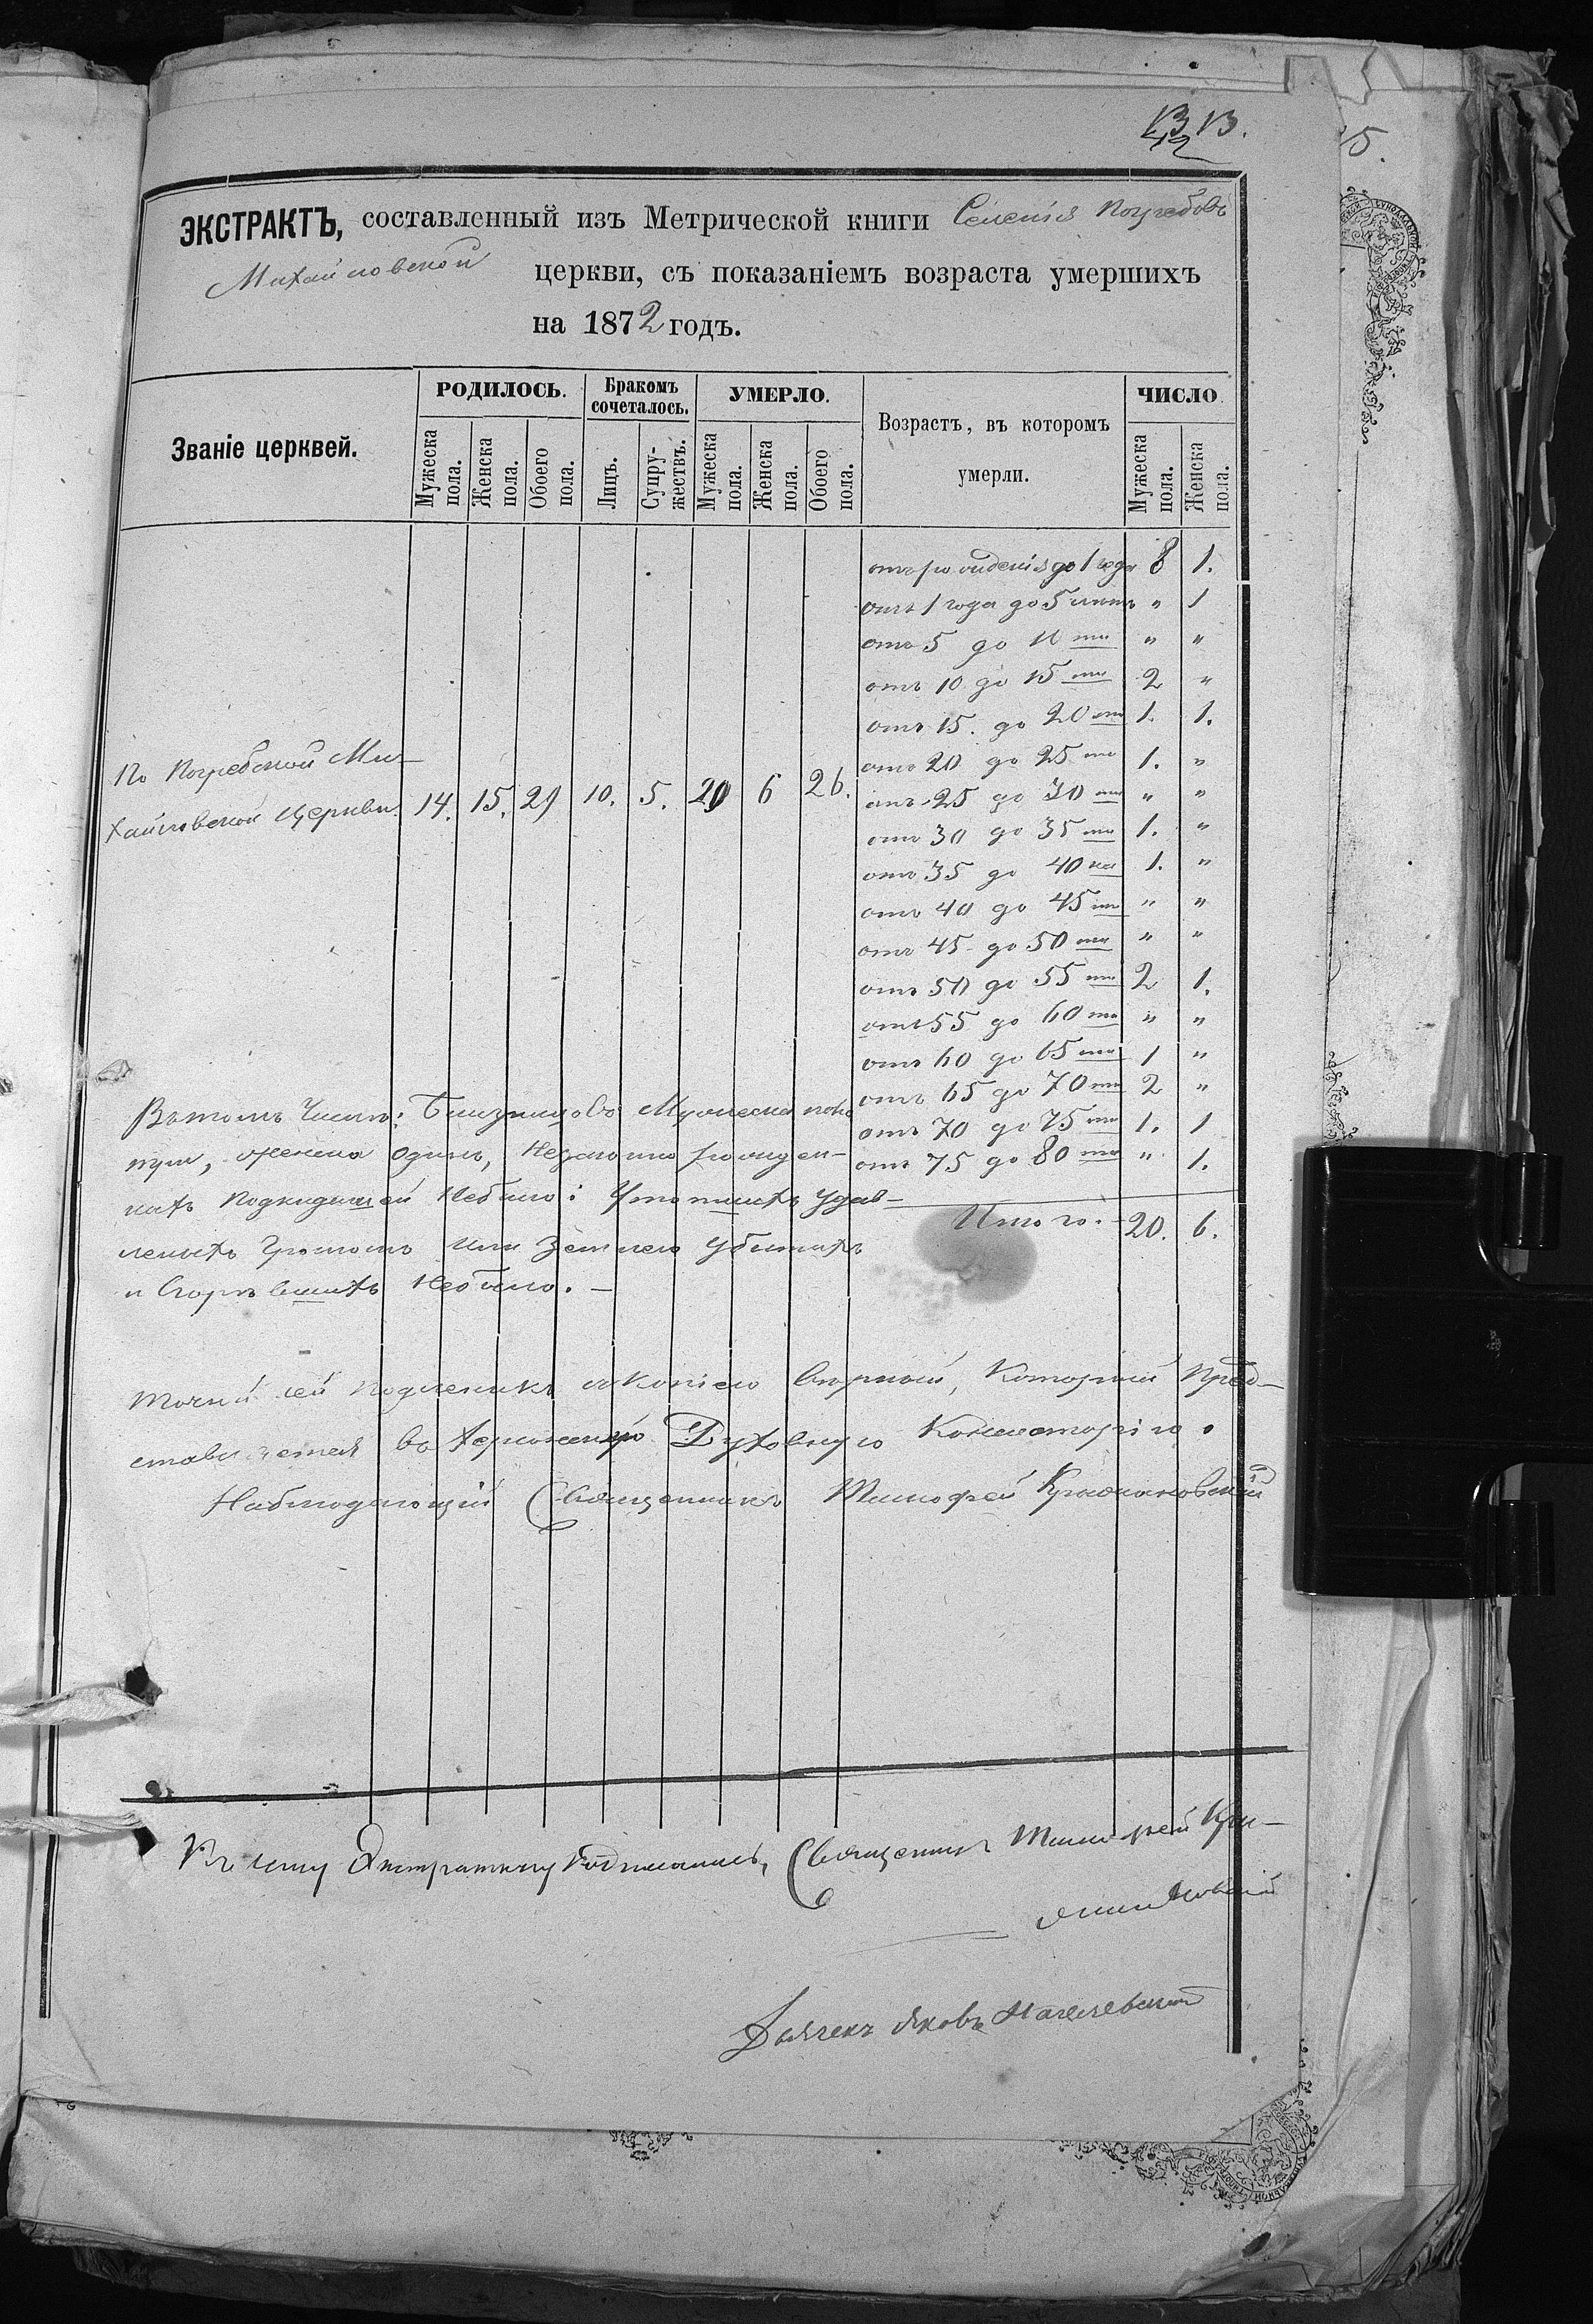 13 13.
42
5.
ЭКСТРАКТЪ, составленный изъ Метрической книги Селенія Погребовъ
Михайловской церкви, съ показаніемъ возраста умершихъ
на 1872 годъ.
Званіе церквей.
РОДИЛОСЬ.
Бракомъ сочеталось.
УМЕРЛО.
Возрастъ, въ которомъ умерли.
ЧИСЛО
Мужеска пола.
Женска пола.
Обоего пола.
Лицъ.
Супружествъ.
Мужеска пола.
Женска пола.
Обоего пола.
Мужеска пола.
Женска пола.
отъ рожденія до 1 года 8 1.
отъ 1 года до 5 летъ " 1
отъ 5 до 10 ти " "
отъ 10 до 15 ти 2 "
отъ 15. до 20 ти 1. 1.
отъ 20 до 25 ти 1. "
отъ 25 до 30 ти " "
отъ 30 до 35 ти 1. "
отъ 35 до 40 ка 1. "
отъ 40 до 45 ти " "
отъ 45 до 50 ти " "
отъ 50 до 55 ти 2 1.
отъ 55 до 60 ти " "
отъ 60 до 65 ти 1 "
отъ 65 до 70 ти 2 "
отъ 70 до 75 ти 1. 1
отъ 75 до 80 ти " 1.
Итого. 20. 6.
По Погребской Ми-
хайловской Церкви. 14. 15. 29 10. 5. 20 6 26.
Въ томъ Числе: Близнецовъ Мужеска пола
одинъ,
ныхъ Подкидышей Небыло: Утопшихъ Удав-
леныхъ Громомъ или Землею Убитыхъ
и Сгоревшихъ Небыло. –
Точный сей подленикъ съ копіею верный, Который Пред-
ставляется въ Херсонскую Духовную Консисторію.
Наблюдающій Священникъ Тимофей Крыжановскій
Къ сему Экстракту Подписались, Священникъ Тимофей Кры-
жановскій
Дьячекъ Яковъ